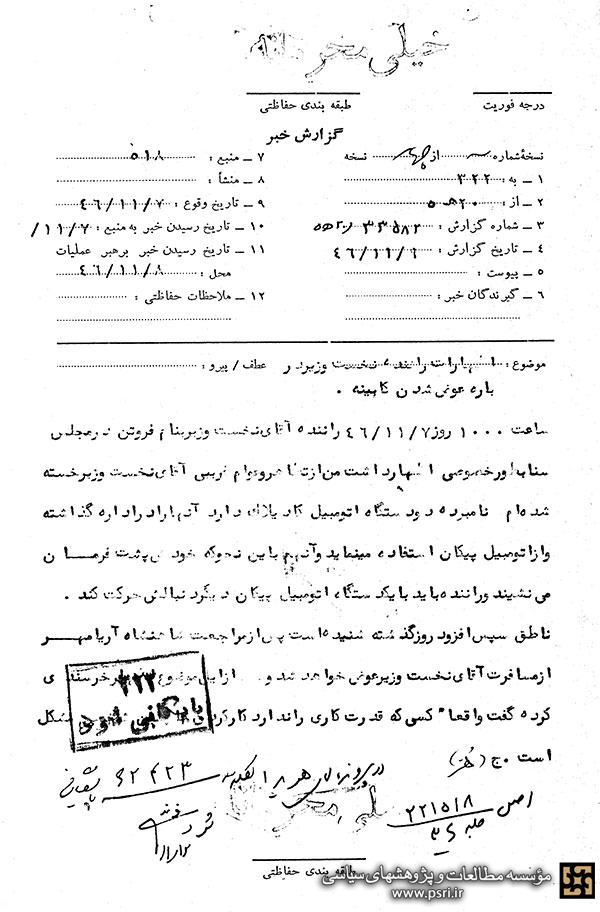 خیلی محرمانه
درجه فوریت
طبقه بندی حفاظتی
گزارش خبر
نسخهٔ شماره از چهار نسخه
۱ ـ به : ۳۲۲
۲ ـ از : ۲۰ ه ۵
۳ ـ شماره گزارش : ۳۳۵۸۲ / ۲۰ ه ۵
۴ ـ تاریخ گزارش : ۴۶/۱۱/۹
۵ ـ پیوست :
۶ ـ گیرندگان خبر :
۷ ـ منبع : ۵۱۸
۸ ـ منشأ :
۹ ـ تاریخ وقوع : ۴۶/۱۱/۷
۱۰ ـ تاریخ رسیدن خبر به منبع : ۱۱/۷/
۱۱ ـ تاریخ رسیدن خبر برهبر عملیات
محل : ۴۶/۱۱/۸
۱۲ ـ ملاحظات حفاظتی :
موضوع : اظهارات راننده نخست وزیر در
عطف / پیرو :
باره عوض شدن کابینه .
ساعت ۱۰۰۰ روز ۴۶/۱۱/۷ راننده آقای نخست وزیر بنام فروتن در مجلس
سنا بطور خصوصی اظهار داشت من از تظاهر و عوام فریبی آقای نخست وزیر خسته
شده‌ام نامبرده دو دستگاه اتومبیل کادیلاک دارد آنها را در اداره گذاشته
و از اتومبیل پیکان استفاده مینماید و آنهم باین نحو که خودش پشت فرمان
می نشیند و راننده باید با یکدستگاه اتومبیل پیکان دیگر دنبالش حرکت کند .
ناطق سپس افزود روز گذشته شنیده است پس از مراجعت شاهنشاه آریامهر
از مسافرت آقای نخست وزیر عوض خواهد شد و از این موضوع خرسندی
کرده گفت واقعاً کسی که قدرت کاری را ندارد کار کردن مشکل
است . ج (هنر)
۳۲۲
بایگانی شود
در پرونده
۶۲۴۲۳
اصل ۲۲۱۵۱۸
جلد
طبقه بندی حفاظتی
مؤسسه مطالعات و پژوهشهای سیاسی
www.psri.ir